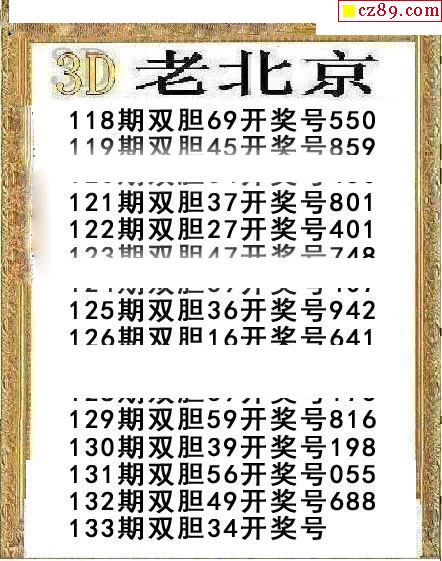 cz89.com
3D 老北京
118期双胆69开奖号550
119期双胆45开奖号859
121期双胆37开奖号801
122期双胆27开奖号401
123期双胆47开奖号748
125期双胆36开奖号942
126期双胆16开奖号641
129期双胆59开奖号816
130期双胆39开奖号198
131期双胆56开奖号055
132期双胆49开奖号688
133期双胆34开奖号